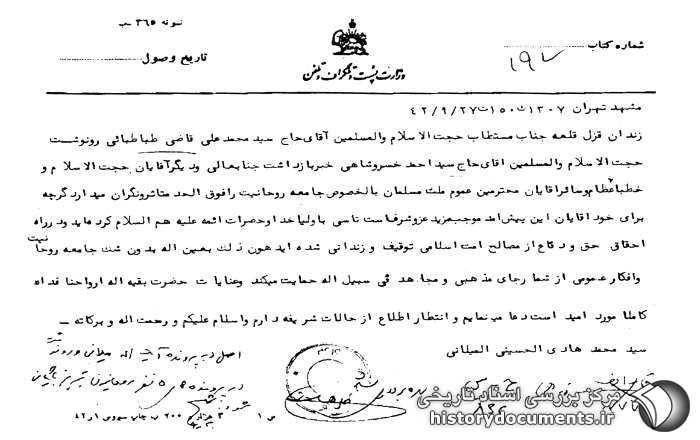 نمونه ۳۶۵ ب
شماره کتاب
۱۹۷
تاریخ وصول
وزارت پست و تلگراف و تلفن
مشهد تهران ۱۳۰۷ ت ۱۵۰ ت ۴۲/۹/۲۷
زندان قزل قلعه جناب مستطاب حجت الاسلام والمسلمین آقای حاج سید محمد علی قاضی طباطبائی رونوشت
حجت الاسلام والمسلمین اقای حاج سید احمد خسروشاهی خبر بازداشت جنابعالی و دیگر آقایان حجت الاسلام و
خطباء عظام و سائر اقایان محترمین عموم ملت مسلمان بالخصوص جامعه روحانیت را فوق الحد متاثر و نگران میدارد گرچه
برای خود اقایان این پیش امد موجب مزید عز و شرف است تاسی باولیا خدا و حضرات ائمه علیه هم السلام کرده اید و در راه
احقاق حق و دفاع از مصالح امت اسلامی توقیف و زندانی شده اید هون ذلک بعین اله بدون شک جامعه روحانیت
وافکار عمومی از شما رجای مذهبی و مجاهد فی سبیل اله حمایت میکند وعنایات حضرت بقیه اله ارواحنا فداه
کاملا مورد امید است دعا مینمایم و انتظار اطلاع از حالات شریفه دارم والسلام علیکم و رحمت اله و برکاته –
سید محمد هادی الحسینی المیلانی
اصل در پرونده آیت اله میلانی و رونوشت
در پرونده ۵ نفر روحانیون تبریز
مرکز بررسی اسناد تاریخی
historydocuments.ir